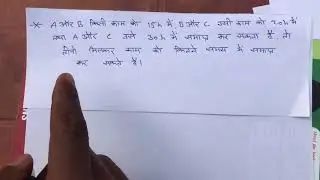 * A और B किसी काम को 15h में, B और C उसी काम को 20h में
तथा A और C उसे 30h में समाप्त कर सकता है तो
तीनों मिलकर काम को कितने समय में समाप्त
कर सकते हैं।